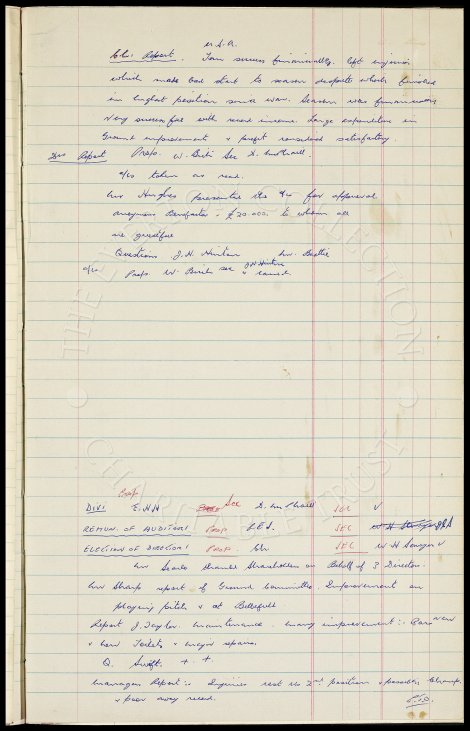 Ch. Report. Tour success financially. Left injuries
which made bad start to season despite which finished
in highest position since war. Season was financially
very successful with record income. Large expenditure in
Ground improvement & profit considered satisfactory.
Dirs Report Prop. W. Sec
a/cs taken as read.
Mr Hughes presented the a/cs for approval
anonymous Benefactor £20,000. to whom all
are grateful
Questions J.H. Hinton Mr.
a/cs Prop. W. Sec J.H. Hinton & carried.
Prop
DIVI E.HH Sec D. SEC V
REMUN. OF AUDITORS PROP. SEC
ELECTION OF DIRECTORS PROP. Ch. SEC W H Sawyer V
Mr Searle thanked Shareholders on Behalf of 3 Directors.
Mr Sharp report of Ground Committee. Improvement on
playing pitch & at Bellefield.
Report J. Taylor. maintenance. many improvement:
& Toilets & major
Q. Swift. + +
Managers Report:- Injuries cost us 2nd position & possible Champ.
& poor away record.
P.T.O.
THE EVERTON COLLECTION
CHARITABLE TRUST